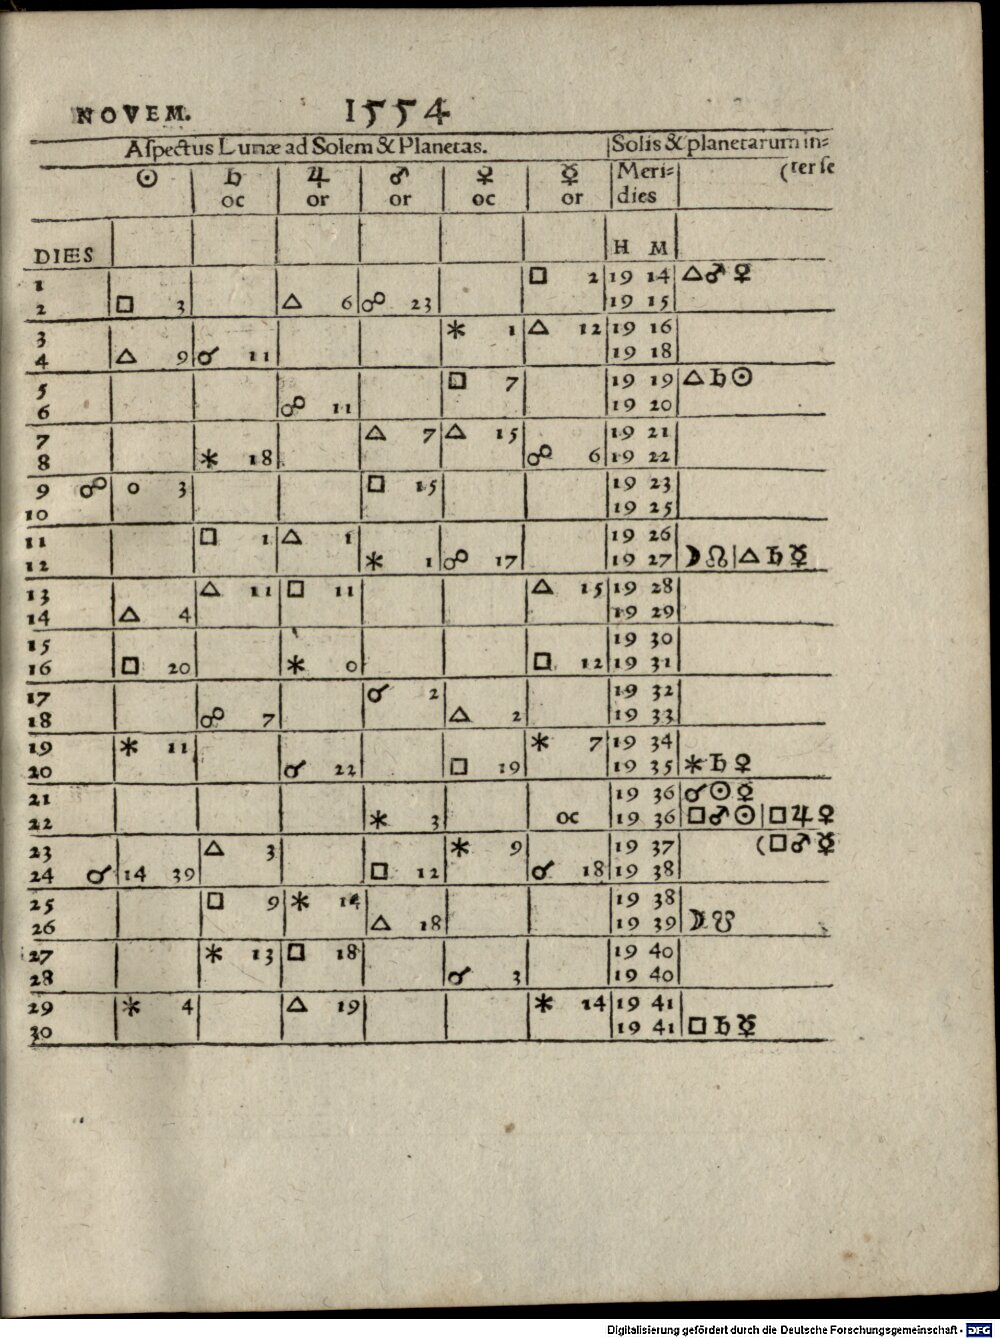 NOVEM. 1554
Aſpectus Lunæ ad Solem & Planetas. Solis & planetarum in=
☉ ♄ ♃ ♂ ♀ ☿ Meri= (ter ſe
oc or or oc or dies
DIES H M
1 □ 2 19 14 △♂♀
2 □ 3 △ 6 ☍ 23 19 15
3 ⚹ 1 △ 12 19 16
4 △ 9 ☌ 11 19 18
5 □ 7 19 19 △♄☉
6 ☍ 11 19 20
7 △ 7 △ 15 19 21
8 ⚹ 18 ☍ 6 19 22
9 ☍ 0 3 □ 15 19 23
10 19 25
11 □ 1 △ 1 19 26
12 ⚹ 1 ☍ 17 19 27 ☽☊|△♄☿
13 △ 11 □ 11 △ 15 19 28
14 △ 4 19 29
15 19 30
16 □ 20 ⚹ 0 □ 12 19 31
17 ☌ 2 19 32
18 ☍ 7 △ 2 19 33
19 ⚹ 11 ⚹ 7 19 34
20 ☌ 22 □ 19 19 35 ⚹♄♀
21 19 36 ☌☉☿
22 ⚹ 3 oc 19 36 □♂☉|□♃♀
23 △ 3 ⚹ 9 19 37 (□♂☿
24 ☌ 14 39 □ 12 ☌ 18 19 38
25 □ 9 ⚹ 14 19 38
26 △ 18 19 39 ☽☋
27 ⚹ 13 □ 18 19 40
28 ☌ 3 19 40
29 ⚹ 4 △ 19 ⚹ 14 19 41
30 19 41 □♄☿
Digitalisierung gefördert durch die Deutsche Forschungsgemeinschaft - DFG